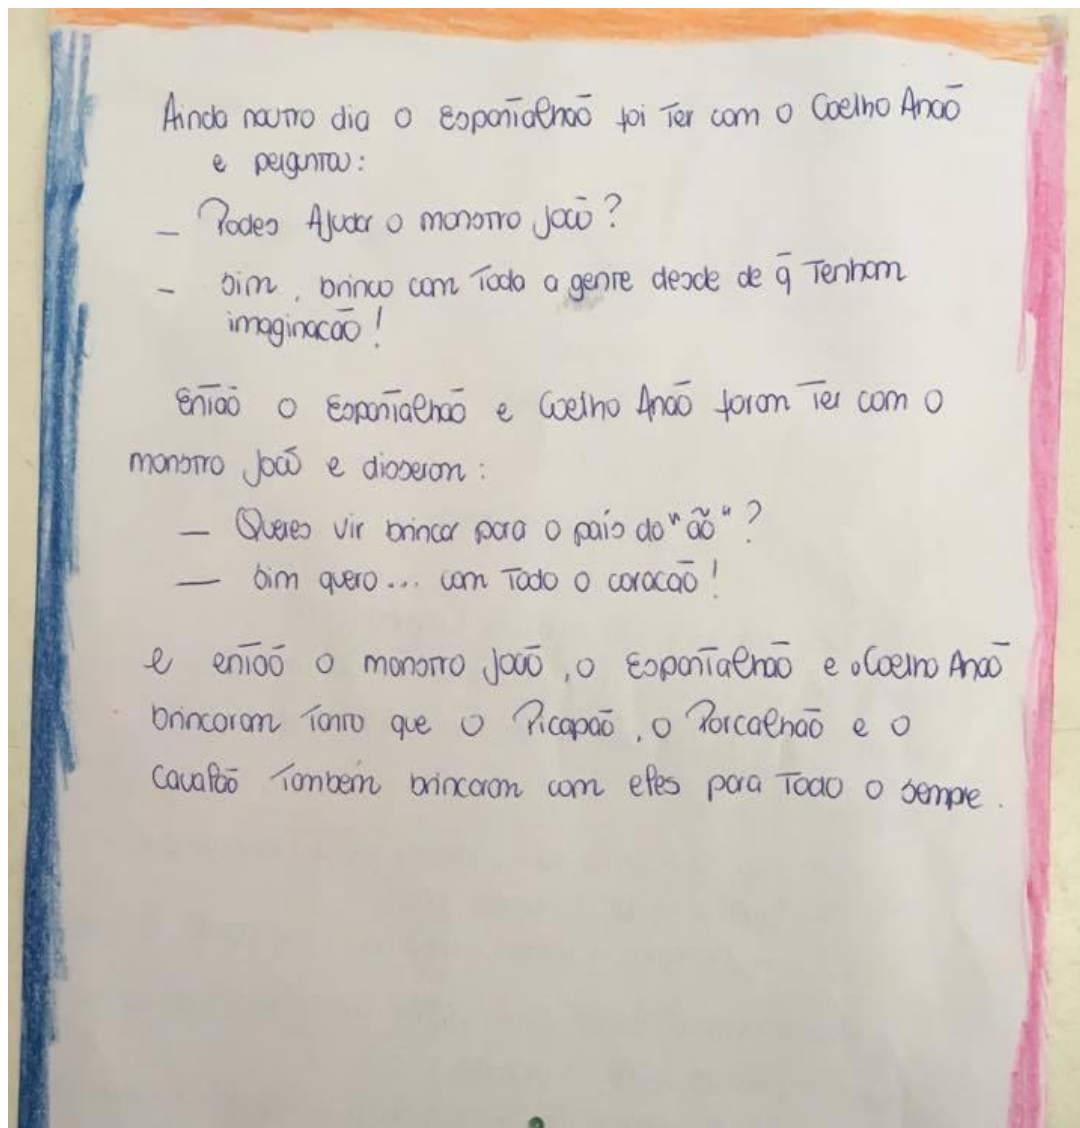 Ainda noutro dia o Espantalhão foi Ter com o Coelho Anão
e pergunta:
– Podes Ajudar o monstro João?
– Sim, brinco com Toda a gente desde de q̄ Tenham
imaginacão!
Então o Espantalhão e Coelho Anão foram Ter com o
monstro João e disseram:
— Queres vir brincar para o país do "ão"?
— Sim quero... com Todo o coracão!
e então o monstro João, o Espantalhão e o Coelho Anão
brincaram Tanto que o Picapão, o Porcalhão e o
Cavalão Também brincaram com eles para Todo o sempre.